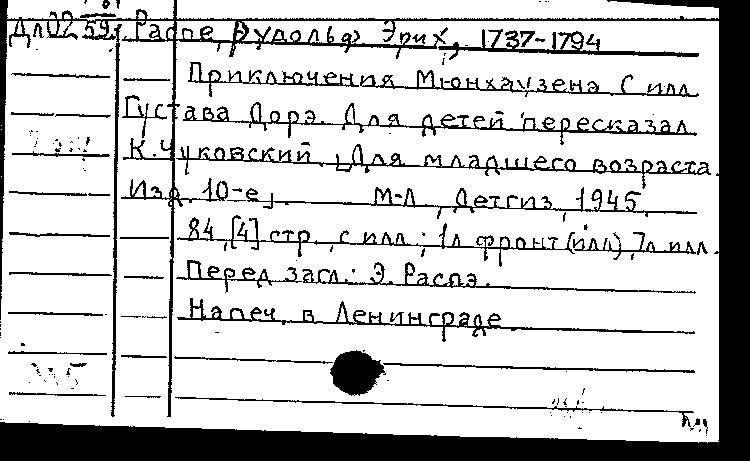 Дл02 59; Распе, Рудольф Эрих, 1737-1794
Приключения Мюнхаузена С илл
Густава Дорэ. Для детей пересказал
К. Чуковский. [Для младшего возраста.
Изд. 10-е]. М-Л, Детгиз, 1945.
84, [4] стр., с илл.; 1л фронт (илл), 7л илл.
Перед загл.: Э. Распэ.
Напеч. в Ленинграде